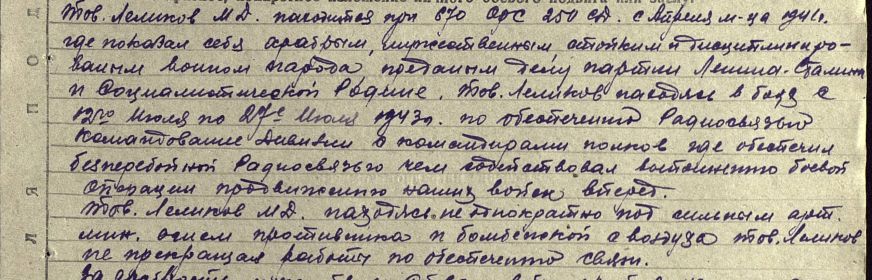 Тов. Лемиков М.Д. находится при 670 ОРС 250 СД. с Апреля м-ца 1942г.
где показал себя храбрым, мужественным, стойким и дисциплиниро-
ваным воином народа, преданым делу партии Ленина-Сталина
и Социалистической Родине. Тов. Лемиков находясь в боях с
12го Июля по 27е Июля 1943г. по обеспечению Радиосвязью
командование Дивизии с командирами полков где обеспечил
безперебойной Радиосвязью чем содетствовал выполнению боевой
операции продвижению наших войск вперед.
Тов. Лемиков М.Д. находясь неоднократно под сильным арт.
мин. огнем противника и бомбежкой с воздуха тов. Лемиков
не прекращал работы по обеспечению связи.
За храбрость
Л П О Д